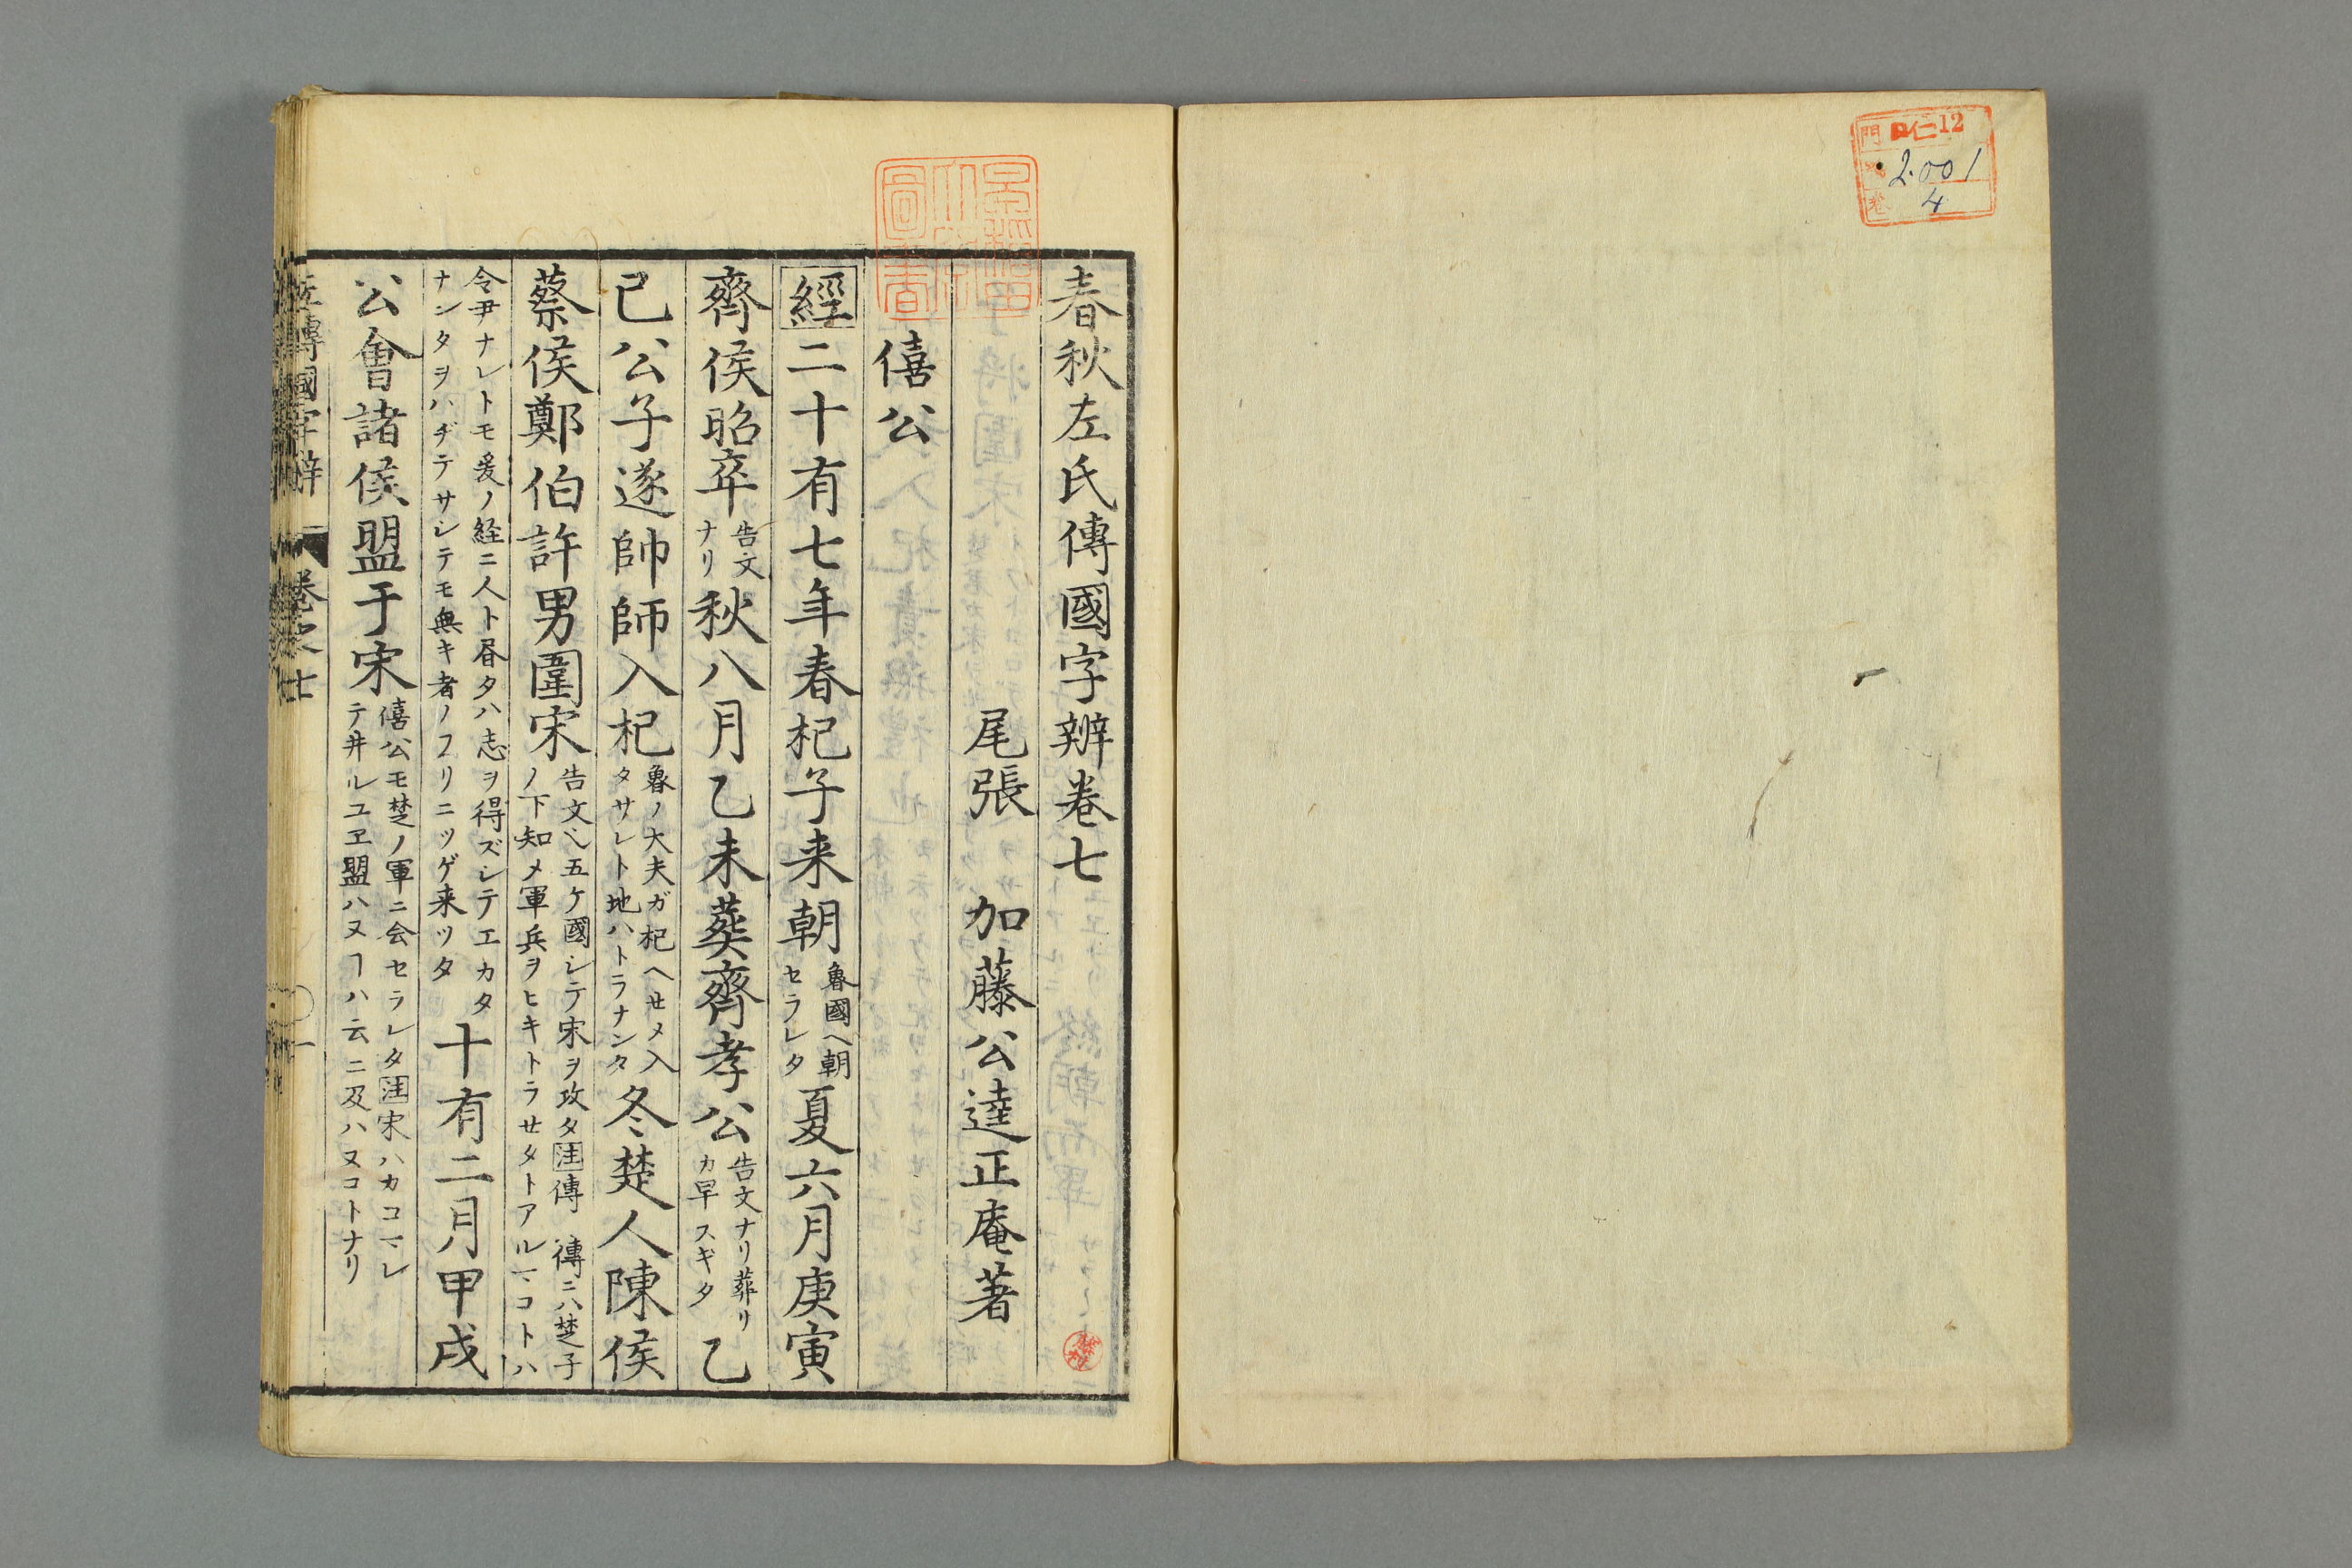 門 仁 12
2.001
4
春秋左氏傳國字辨卷七
尾張 加藤公逵正庵著
僖公
經二十有七年春杞子来朝
魯國ヘ朝
セラレタ
夏六月庚寅
齊侯昭卒
告文
ナリ
秋八月乙未葬齊孝公
告文ナリ葬リ
カ早スギタ
乙
巳公子遂帥師入杞
魯ノ大夫ガ杞ヘせメ入
タサレト地ハトラナンタ
冬楚人陳侯
蔡侯鄭伯許男圍宋
告文也五ケ國シテ宋ヲ攻タ注傳 傳ニハ楚子
ノ下知メ軍兵ヲヒキトラサタトアルヿコトハ
令尹ナレトモ爰ノ経ニ人ト昏タハ志ヲ得ズシテエカタ
ナンタヲハヂテサレテモ無キ者ノフリニツゲ来ツタ
十有二月甲戌
公會諸侯盟于宋
僖公モ楚ノ軍ニ会セラレタ注宋ハカコマレ
テ井ルユヱ盟ハヌヿハ云ニ及ハヌコトナリ
左傳國字辨 卷之七 一